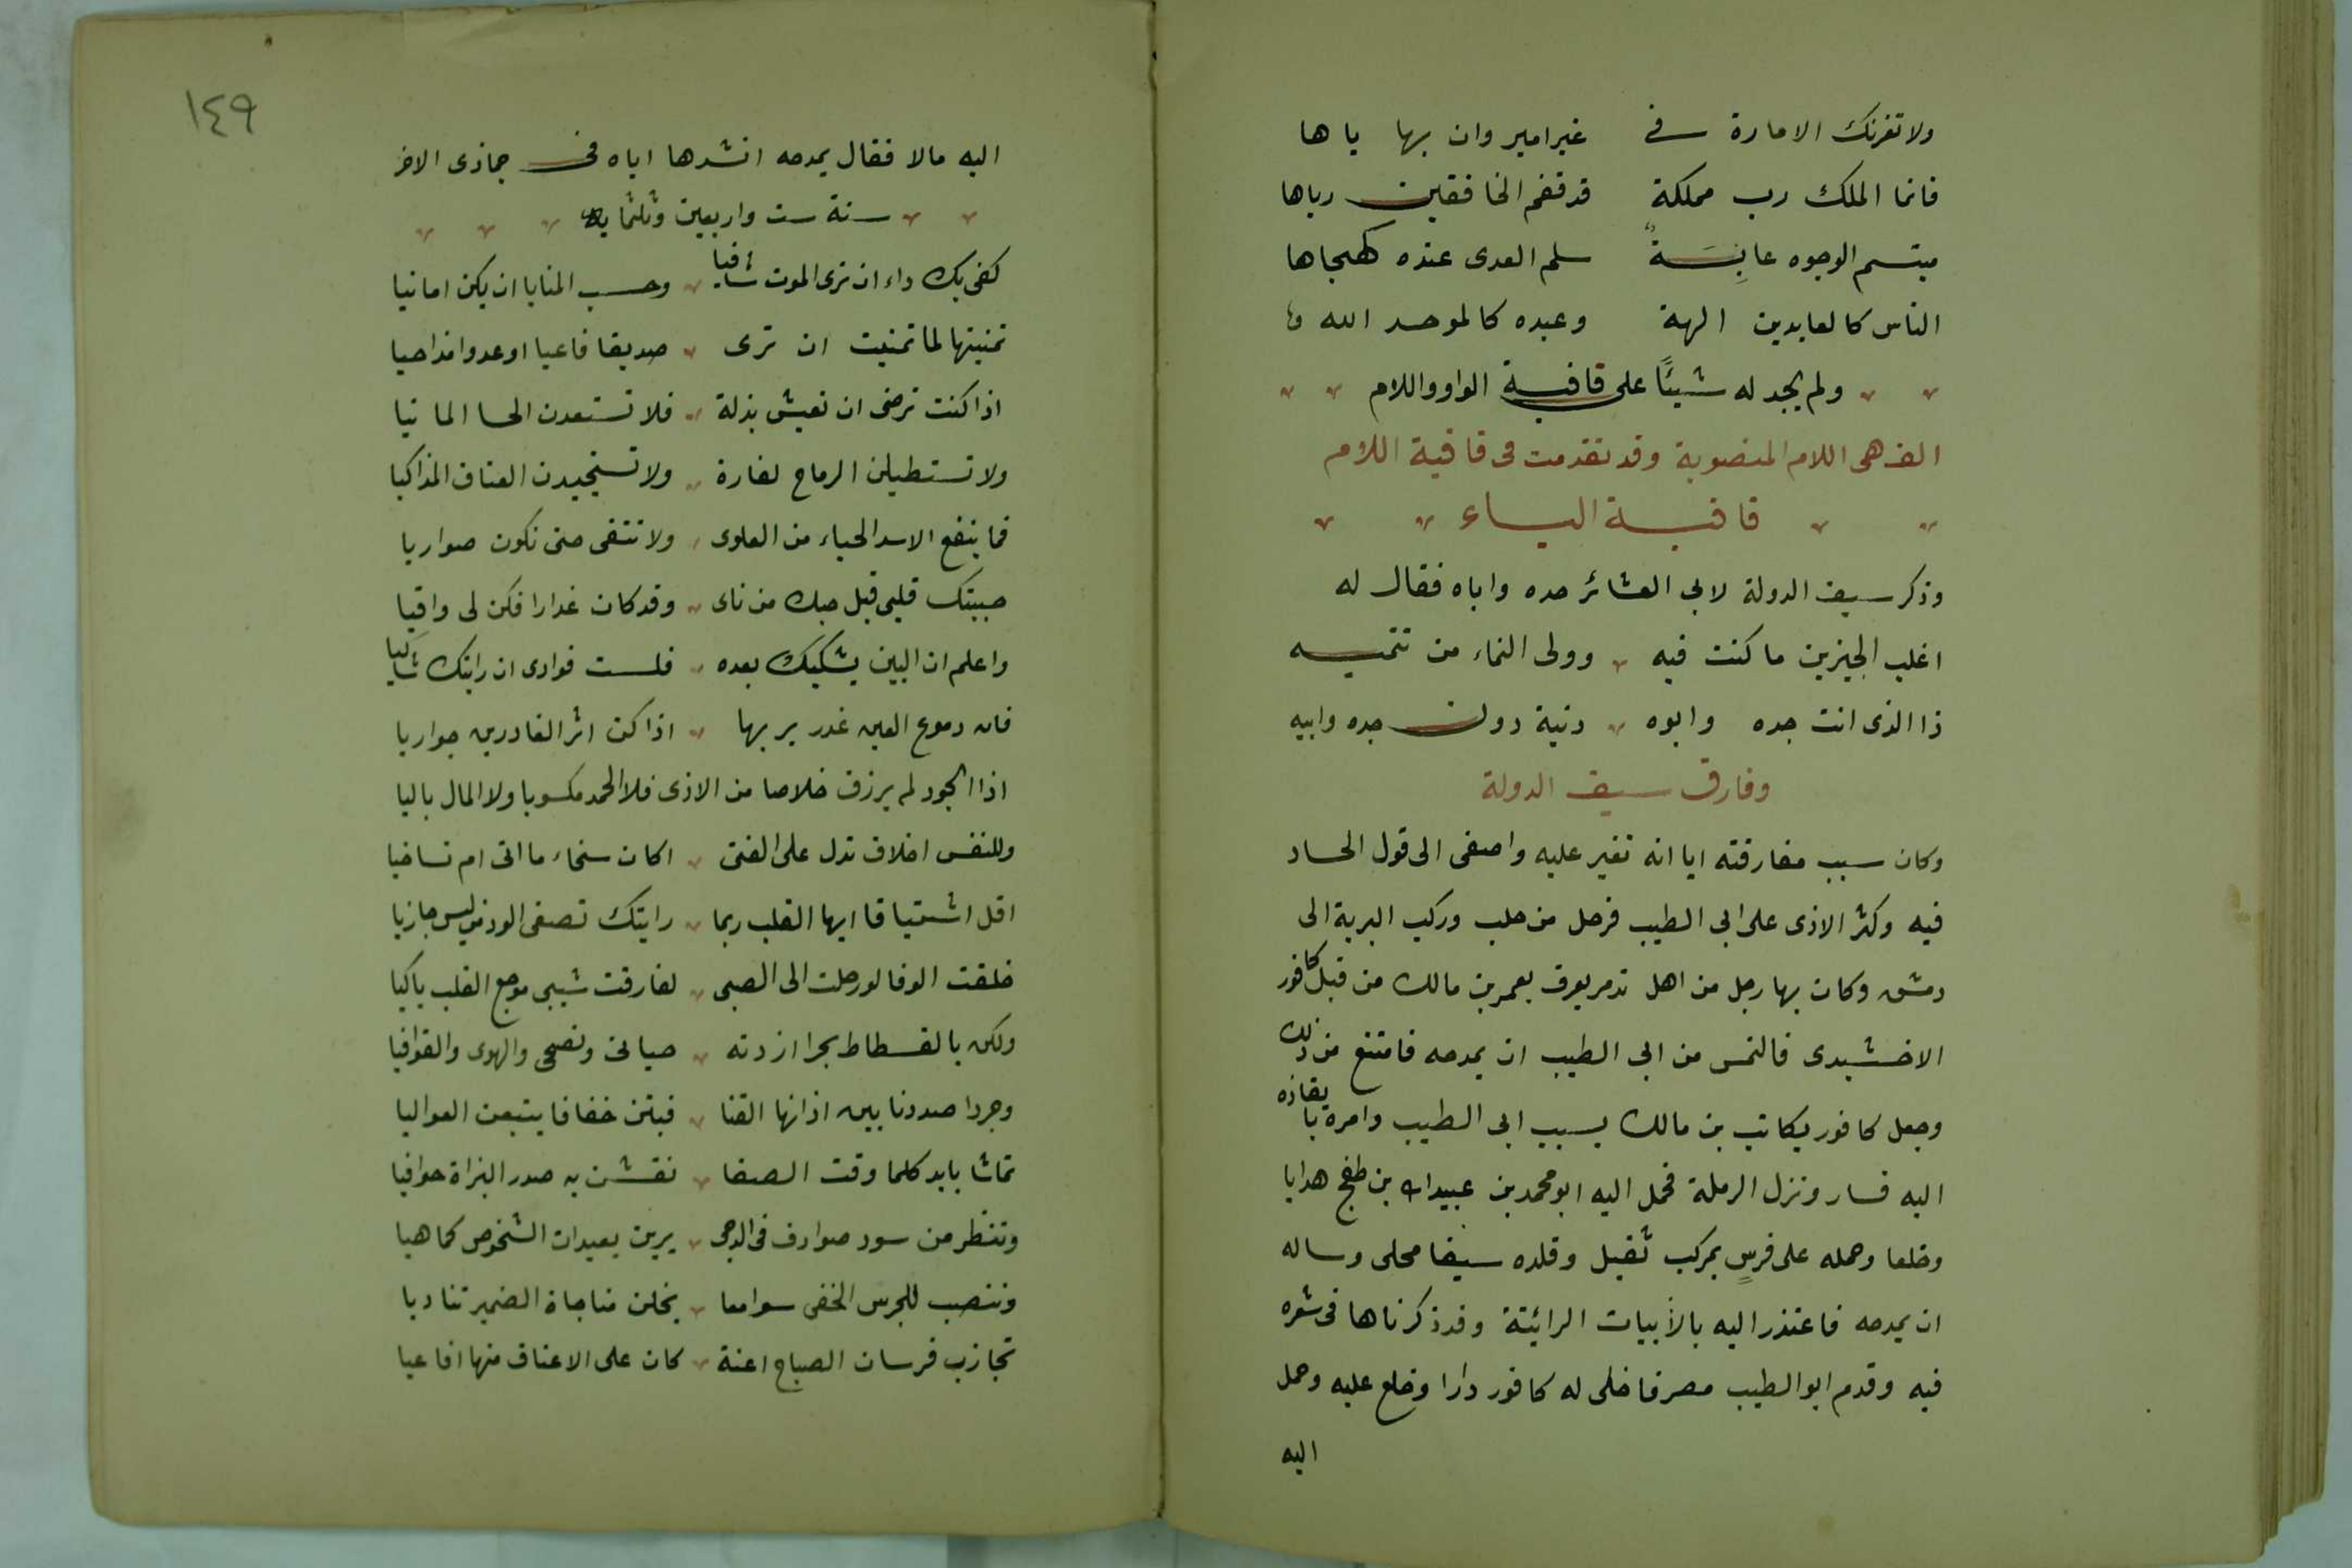 ولا تغرنك الامارة في غير امير وان بها باها
فانما الملك رب مملكة قد قفم الخافقين رياها
مبتسم الوجوه عابسة سلم العدى عنده كهيجاها
الناس كالعابدين الهة وعبده كالموحد الله
ولم يجد له شيئًا على قافية الواو واللام
الف هى اللام المنصوبة وقد تقدمت فى قافية اللام
قافية الياء
وذكر سيف الدولة لابى العشائر جده واباه فقال له
اغلب الحيزين ما كنت فيه وولى النماء من تنميه
ذا الذى انت جده وابوه دنية دون جده وابيه
وفارق سيف الدولة
وكان سبب مفارقته ايا انه تغير عليه واصغى الى قول الحساد
فيه وكثر الاذى على ابى الطيب فرحل من حلب وركب البرية الى
دمشق وكان بها رجل من اهل تدمر يعرف بعمر بن مالك من قبل كافور
الاخشيدى فالتمس من ابى الطيب ان يمدحه فامتنع من ذلك
وجعل كافور يكاتب بن مالك بسبب ابى الطيب وامره با يقاذه
اليه فسار ونزل الرملة فحمل اليه ابو محمد بن عبيدالله بن طغج هدايا
وخلعا وحمله على فرسٍ بمركب ثقيل وقلده سيفا محلى وساله
ان يمدحه فاعتذر اليه بالأبيات الرائية وقد ذكرناها فى شعره
فيه وقدم ابو الطيب مصر فاخلى له كافور دارا وخلع عليه وحمل
اليه
١٤٩
اليه مالا فقال يمدحه انشدها اياه فى جماذى الاخر
سنة ست واربعين وثلثمايه
كفى بك داء ان ترى الموت شافيا وحسب المنايا ان يكن امانيا
تمنيتها لما تمنيت ان ترى صديقا فاعيا او عدوا مداجيا
اذا كنت ترضى ان تعيش بذلة فلا تستعدن الحسا المانيا
ولا تستطيلن الرماح لغارة ولا تستجيدن العتاق المذاكيا
فما ينفع الاسد الحياء من الطوى ولا تتقى حتى تكون ضواريا
حببتك قلبى قبل حبك من ناى وقد كان غدارا فكن لى وافيا
واعلم ان البين يشكيك بعده فلست فوادى ان رايتك شاكيا
فان دموع العين غدر بربها اذا كن اثر الغادرين جواريا
اذا الجود لم يرزق خلاصا من الاذى فلا الحمد مكسوبا ولا المال باليا
وللنفس اخلاق تدل على الفتى اكان سخاء ما اتى ام تساخيا
اقل اشتياقا ايها القلب ربما رايتك تصفى الود من ليس جازيا
خلقت الوفا لو رحلت الى الصبى لفارقت شيبى موجع القلب باكيا
ولكن بالفسطاط بحرا ازدته حياتى ونصحى والهوى والقوافيا
وجردا مددنا بين اذانها القنا فبتن خفافا يتبعن العواليا
تماشا بايد كلما وقت الصفا نقشن به صدر البزاة حوافيا
وتنظر من سود صوادق فى الدجى يرين بعيدات الشخوص كما هيا
وتنصب للجرس الخفى سوامعا يخلن مناجاة الضمير تناديا
تجاذب فرسان الصباح اعنة كان على الاعناق منها افاعيا